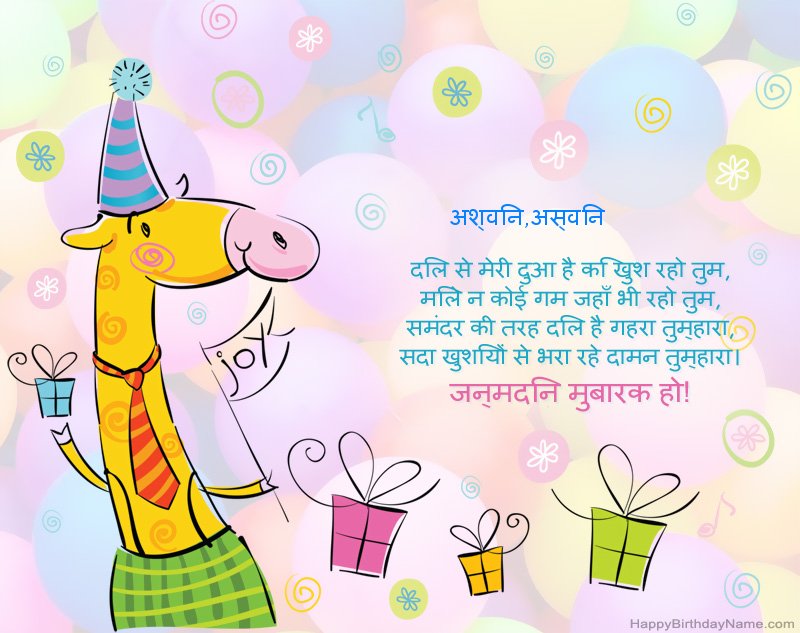 अश्वनि,अस्वनि
दलि से मेरी दुआ है कि खुश रहो तुम,
मलिे न कोई गम जहाँ भी रहो तुम,
समंदर की तरह दलि है गहरा तुम्हारा,
सदा खुशयिों से भरा रहे दामन तुम्हारा।
जन्मदनि मुबारक हो!
joy
HappyBirthdayName.com